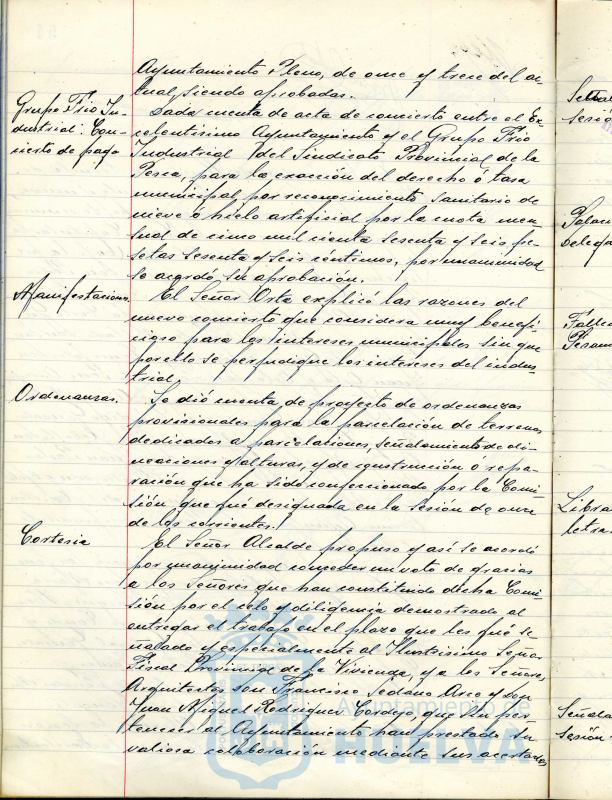 Ayuntamiento Pleno, de once y trece del ac-
tual siendo aprobadas.
Grupo Frio In-
dustrial: Con-
cierto de pago
Dada cuenta de acta de concierto entre el Ex-
celentisimo Ayuntamiento y el Grupo Frio
Industrial del Sindicato Provincial de la
Pesca, para la exacción del derecho ó tasa
municipal por reconocimiento sanitario de
nieve ó hielo artificial por la cuota men-
sual de cinco mil ciento sesenta y seis pe-
setas sesenta y seis centimos, por unanimidad
se acordó su aprobación.
Manifestaciones
El Señor Orta explicó las razones del
nuevo concierto que considera muy benefi-
cioso para los intereses municipales sin que
por ello se perjudique los intereses del indus-
trial.
Ordenanzas.
Se dió cuenta de proyecto de ordenanzas
provisionales para la parcelación de terrenos
dedicados a parcelaciones, señalamiento de ali-
neaciones y alturas, y de construcción ó repa-
ración que ha sido confeccionado por la Comi-
sión que fué designada en la sesión de once
de los corrientes.
Cortesia
El Señor Alcalde propuso y así se acordó
por unanimidad conceder un voto de gracias
a los Señores que han constituido dicha Comi-
sión por el celo y diligencia demostrado al
entregar el trabajo en el plazo que les fué se-
ñalado y especialmente al Ilustrisimo Señor
Fiscal Provincial de la Vivienda, y a los Señores
Arquitectos don Francisco Sedano Arce y don
Juan Miguel Rodriguez Cordejo, que sin per-
tenecer al Ayuntamiento han prestado su
valiosa colaboración mediante sus acertados
Ayuntamiento de
HUELVA
sesió
Palac
Deleg
Falle
Pesam
Libra
letra
Señala
Sesión